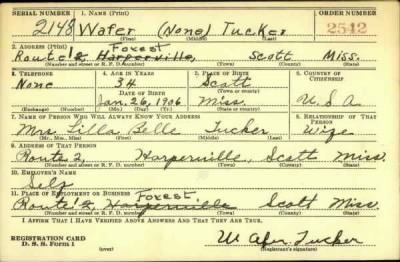 SERIAL NUMBER 1. NAME (Print) ORDER NUMBER
2148 Wafer (None) Tucker 2542
(First) (Middle) (Last)
2. ADDRESS (Print)
Forest
Route # 2 Harperville, Scott Miss.
(Number and street or R. F. D. number) (Town) (County) (State)
3. TELEPHONE 4. AGE IN YEARS 5. PLACE OF BIRTH 6. COUNTRY OF CITIZENSHIP
None 34 Scott
(Town or county)
DATE OF BIRTH
Jan. 26, 1906 Miss. U.S.A
(Exchange) (Number) (Mo.) (Day) (Yr.) (State or country)
7. NAME OF PERSON WHO WILL ALWAYS KNOW YOUR ADDRESS 8. RELATIONSHIP OF THAT PERSON
Mrs. Lilla Belle Tucker Wife
(Mr., Mrs., Miss) (First) (Middle) (Last)
9. ADDRESS OF THAT PERSON
Route 2, Harperville, Scott Miss.
(Number and street or R. F. D. number) (Town) (County) (State)
10. EMPLOYER'S NAME
Self
11. PLACE OF EMPLOYMENT OR BUSINESS
Forest
Route # 2, Harperville Scott Miss
(Number and street or R. F. D. number) (Town) (County) (State)
I AFFIRM THAT I HAVE VERIFIED ABOVE ANSWERS AND THAT THEY ARE TRUE.
REGISTRATION CARD
D. S. S. Form 1 (over) Wafer Tucker
(Registrant's signature)